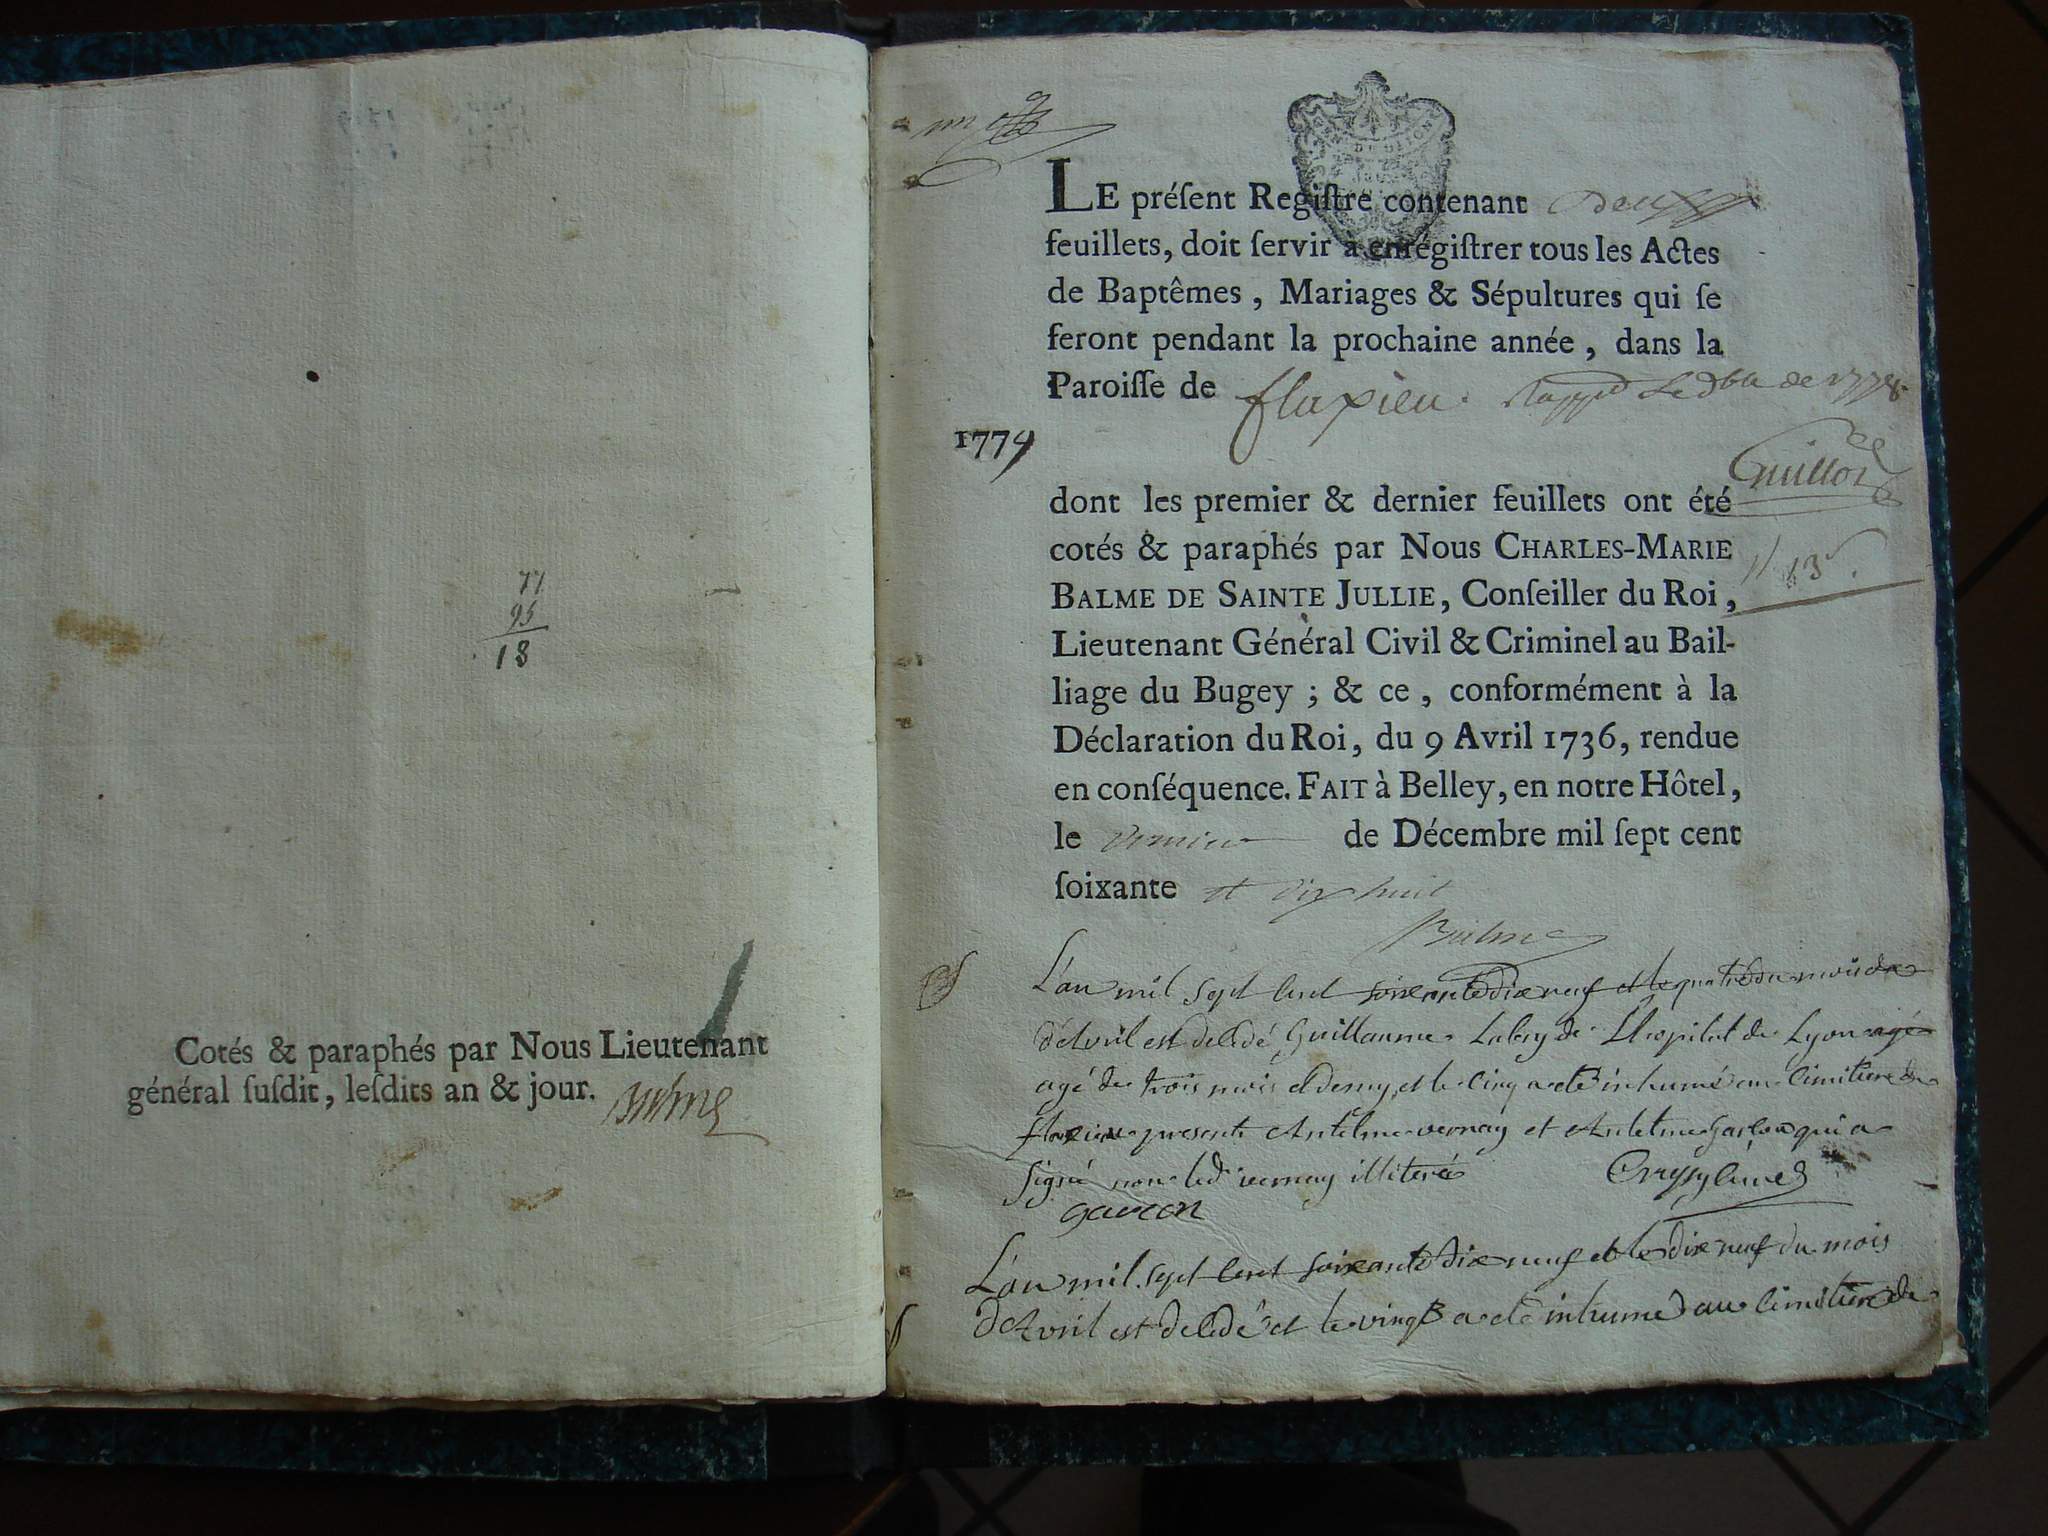 77
95
18
Cotés & paraphés par Nous Lieutenant
général ſuſdit, leſdits an & jour. Balme
LE préſent Regiſtre contenant deux
feuillets, doit ſervir à enrégiſtrer tous les Actes
de Baptêmes, Mariages & Sépultures qui ſe
feront pendant la prochaine année, dans la
Paroiſſe de flaxieu. de 1778
1779
Guillot
dont les premier & dernier feuillets ont été
cotés & paraphés par Nous CHARLES-MARIE
BALME DE SAINTE JULLIE, Conſeiller du Roi,
Lieutenant Général Civil & Criminel au Bail-
liage du Bugey; & ce, conformément à la
Déclaration du Roi, du 9 Avril 1736, rendue
en conſéquence. FAIT à Belley, en notre Hôtel,
le premier de Décembre mil ſept cent
ſoixante et dix huit
Balme
L'an mil sept cent soixante dix neuf et le quatre du mois de
d'Avril est decedé Guillaume de L'hopital de Lyon agé
agé de trois mois et demy, et le cinq a eté inhumé au cimitiere de
flaxieu presents Antelme vernay et Antelme Garçon qui a
signé non led vernay illiteré
garcon
L'an mil sept cent soixante dix neuf et le dix neuf du mois
d'Avril est decedé et le vingt a eté inhumé au cimitiere de